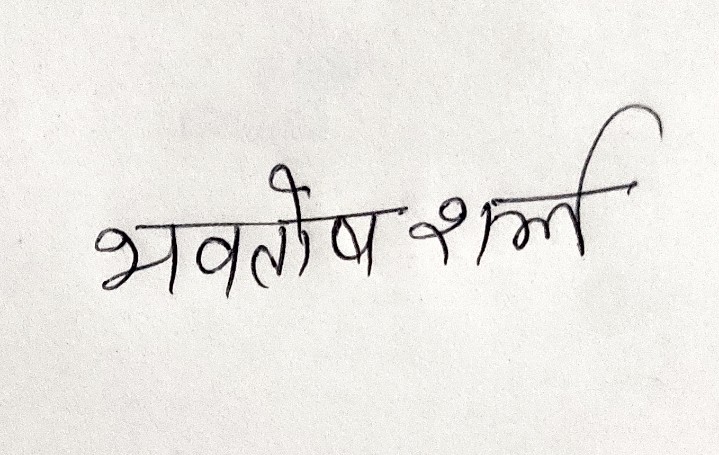 भवतोष शर्मा